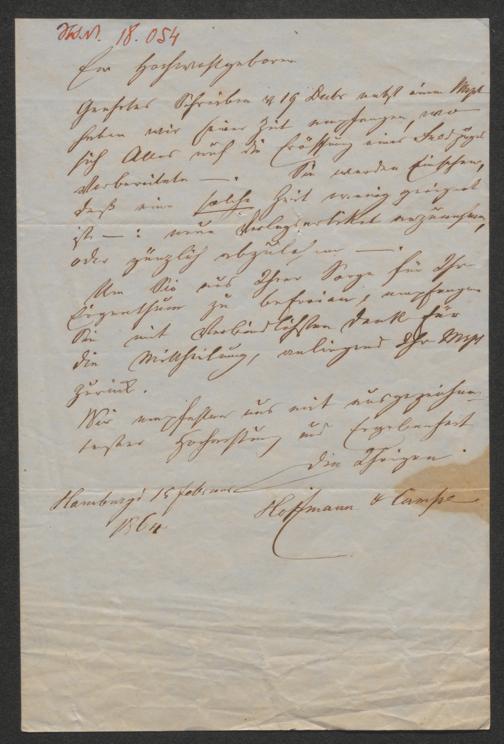 H.I.N. 18.054
Ew Hochwohlgeboren
Geehrtes Schreiben v 19 Decbr nebst einem Mspt
haben wir seiner Zeit empfangen, wo
sich Alles auf die Eröffnung eines Feldzuges
vorbereitete —. Sie werden einsehen,
daß eine solche Zeit wenig geeignet
ist —: neue Verlagsartikel anzunehmen,
oder gänzlich abzulehnen —.
Um Sie aus Ihrer Sorge für Ihr
Eigenthum zu befreien, empfangen
Sie mit verbindlichsten Dank für
die Mittheilung, anliegend Ihr Mspt
zurück.
Wir empfehlen uns mit ausgezeichne-
tester Hochachtung und Ergebenheit
die Ihrigen
Hamburg 15 Februar
1864
Hoffmann & Campe